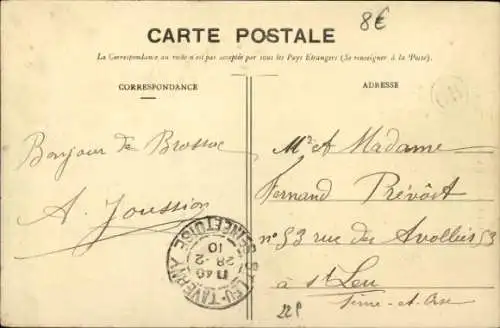 8€
CARTE POSTALE
La Correspondance au recto n'est pas acceptée par tous les Pays Etrangers (Se renseigner à la Poste).
CORRESPONDANCE
ADRESSE
Bonjour de Brosse
A. Joussion
Mr et Madame
Fernand Prévôst
n° 53 rue des 53
à St Leu
Seine-et-Oise
ST LEU-TAVERNY
11 40
28-2
10
SEINE ET OISE
22P